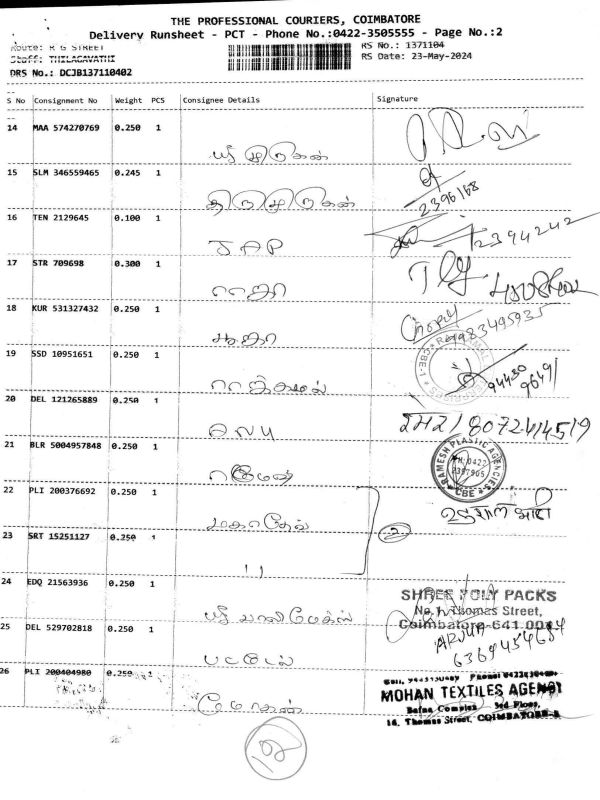 THE PROFESSIONAL COURIERS, COIMBATORE
Delivery Runsheet - PCT - Phone No.:0422-3505555 - Page No.:2
Route: R G STREET
RS No.: 1371104
Staff: THILAGAVATHI
RS Date: 23-May-2024
DRS No.: DCJB137110402
S No Consignment No Weight PCS Consignee Details Signature
14 MAA 574270769 0.250 1
ஸ்ரீ முருகன்
15 SLM 346559465 0.245 1
திருமுருகன்
2396168
16 TEN 2129645 0.100 1
JAP
2394242
17 STR 709698 0.300 1
ராஜா
18 KUR 531327432 0.250 1
பூஜா
9983495935
19 SSD 10951651 0.250 1
94430
9649
20 DEL 121265889 0.250 1
8072414519
21 BLR 5004957848 0.250 1
ரமேஷ்
RAMESH PLASTIC AGENCIES
PH:0422
2397905
CBE
22 PLI 200376692 0.250 1
மகாதேவ்
2
23 SRT 15251127 0.250 1
"
24 EDQ 21563936 0.250 1
ஸ்ரீ பாலிபேக்ஸ்
SHREE POLY PACKS
Thomas Street,
Coimbatore-641 001
ARJUN
25 DEL 529702818 0.250 1
பட்டேல்
26 PLI 200404980 0.250 1
மோகன்
MOHAN TEXTILES AGENCY
Bafna Complex 3rd Floor,
16, Thomas Street, COIMBATORE-1